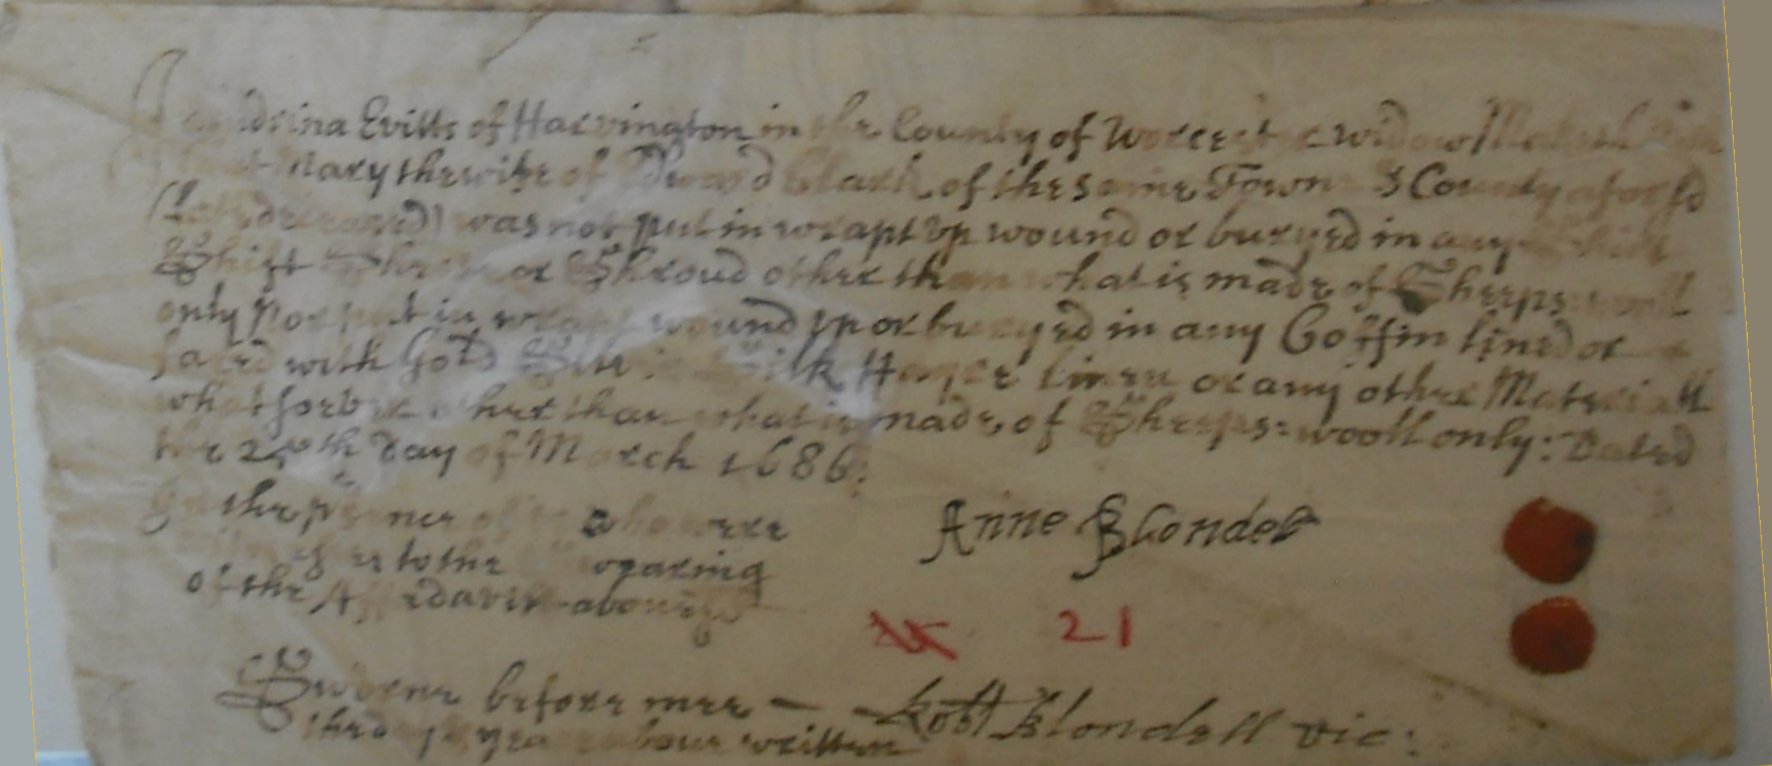 Evitts of Harvington in the County of Worcester widow Maketh Oath
that Mary the wife of Edward Clark of the same Towne & County aforesd
(Late deceased) was not put in wrapt vp wound or buryed in any
Shift or Shroud other than what is made of Sheeps: wooll
only Nor put in wrapt wound vp or buryed in any Coffin lined or
faced with Gold Silver Silk Hayre Linen or any other Materiall
whatsoever other than what is made, of Sheeps: wooll only: Dated
the 25th Day of March 1686:
In the of whowere
to the
Anne Blondel
of the above
21
Sworne before mee — Robt Blondell vic:
the yeare above written